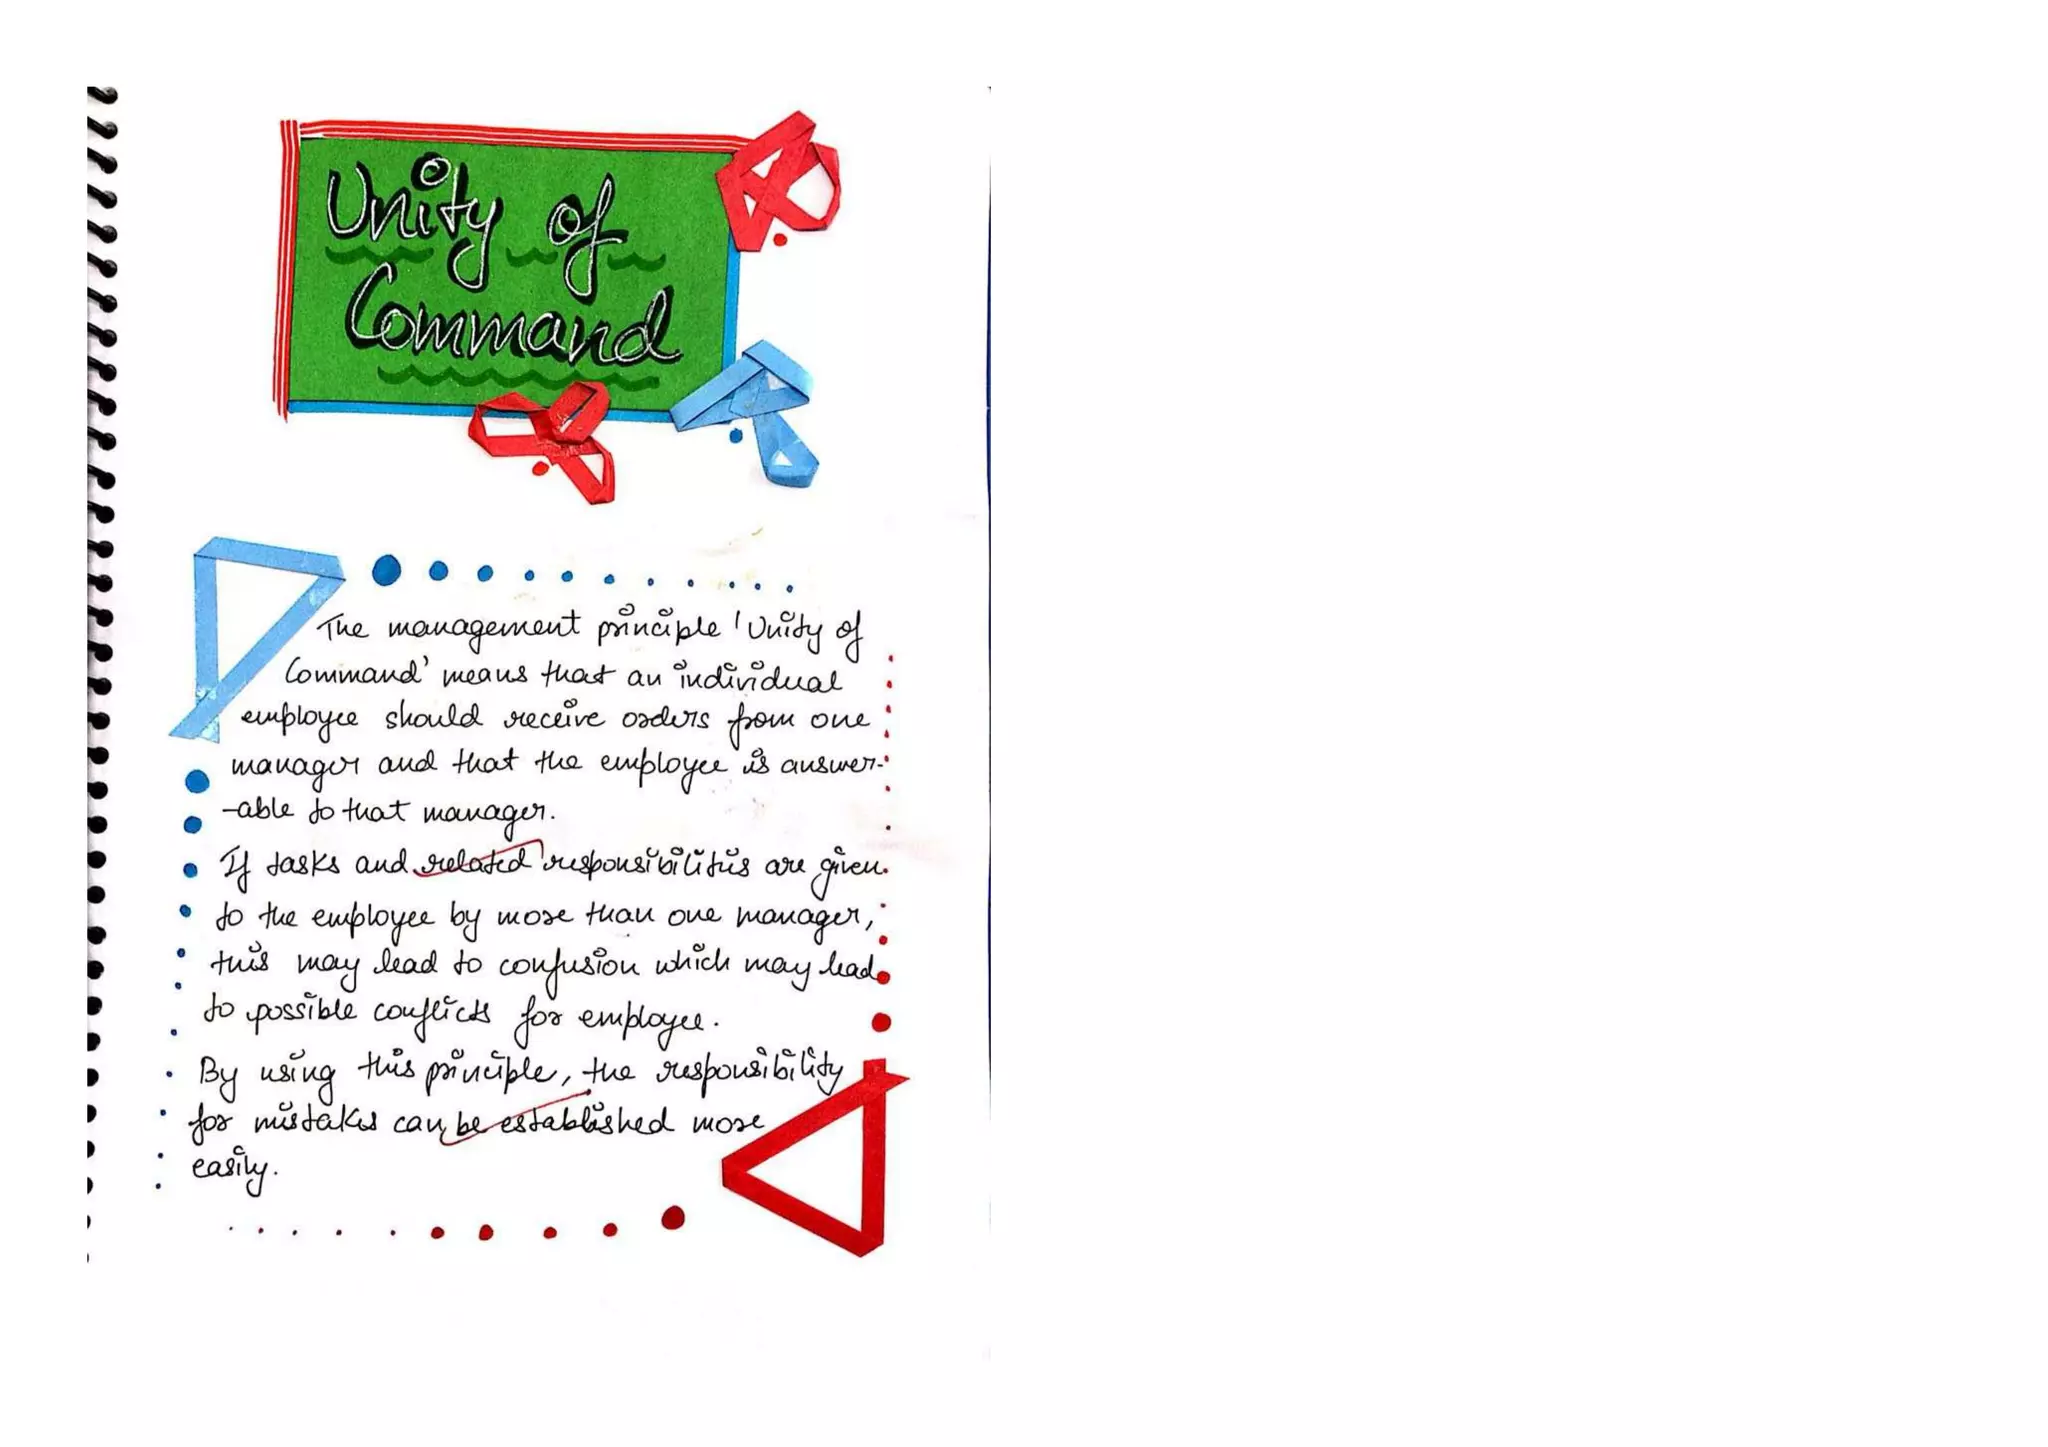 Unity of
Command
The management principle 'Unity of
Command' means that an individual
employee should receive orders from one
manager and that the employee is answer-
-able to that manager.
If tasks and related responsibilities are given
to the employee by more than one manager,
this may lead to confusion which may lead
to possible conflicts for employee.
By using this principle, the responsibility
for mistakes can be established more
easily.